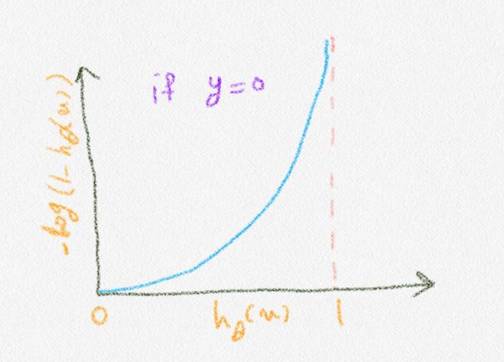 if y=0
-log(1-hθ(x))
0 hθ(x) 1